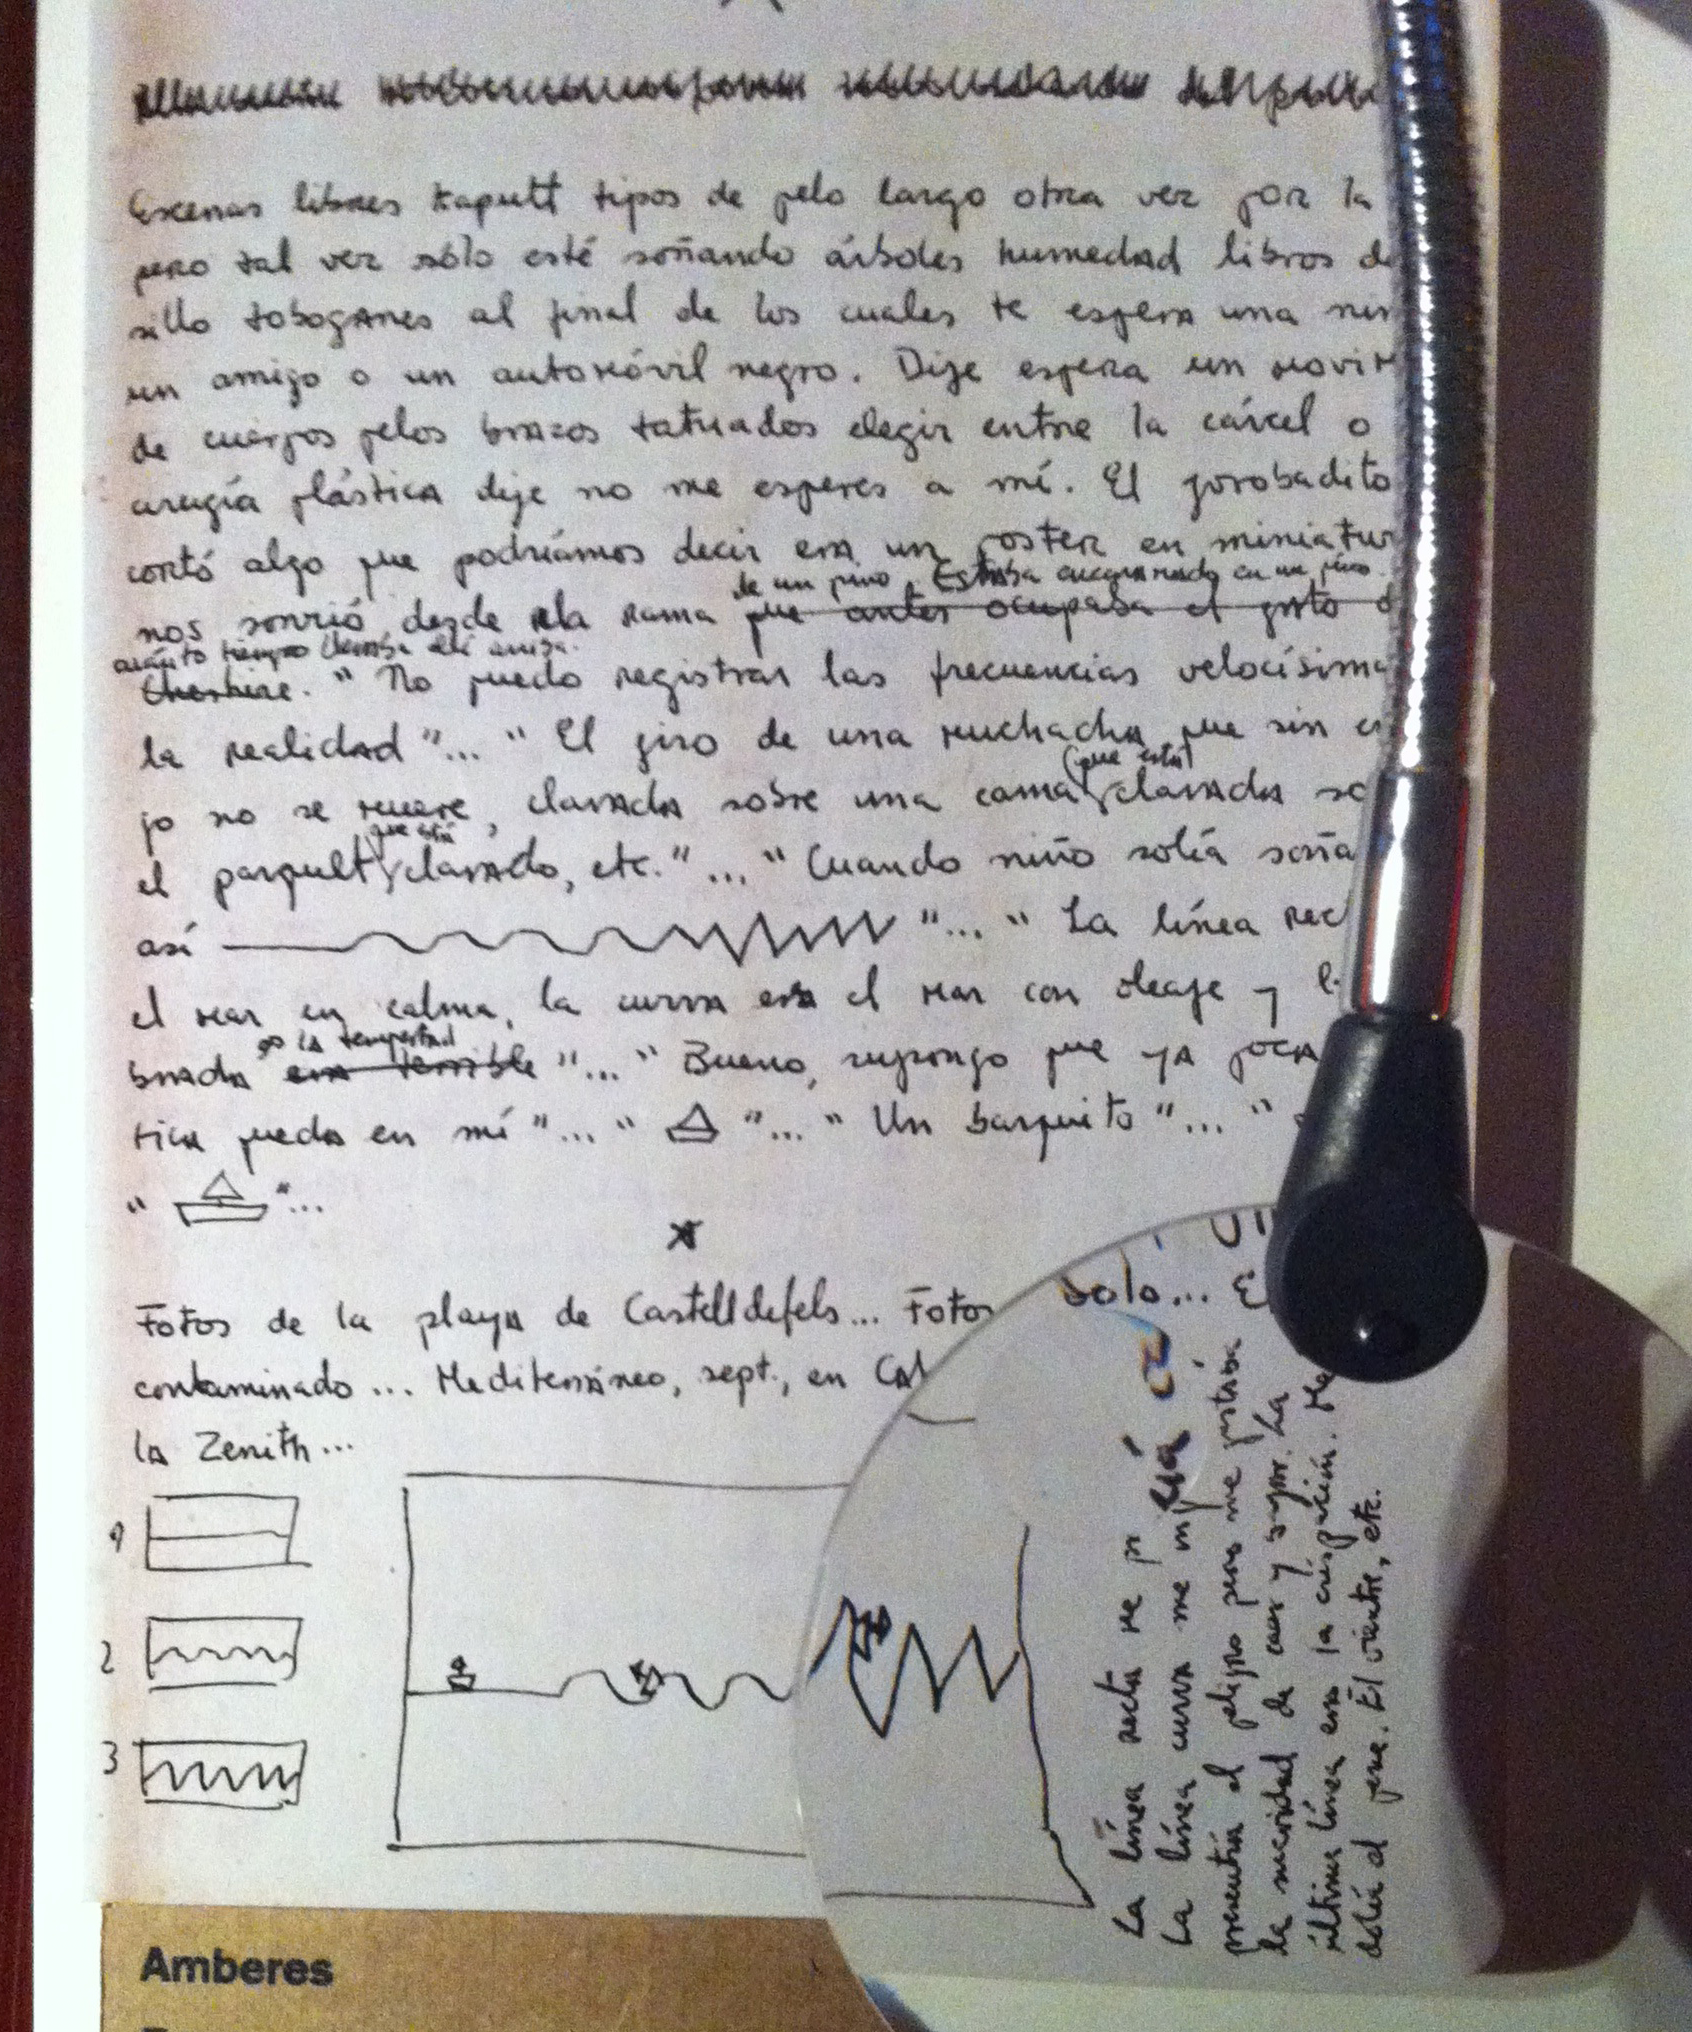 Escenas libres kaputt tipos de pelo largo otra vez por la
pero tal vez sólo esté soñando árboles humedad libros de
sillo toboganes al final de los cuales te espera una
un amigo o un automóvil negro. Dije espera un
de cuerpos pelos brazos tatuados elegir entre la cárcel o
cirugía plástica dije no me esperes a mí. El jorobadito
cortó algo que podríamos decir era un poster en miniatur
de un pino. Estaba encaramado en un pino.
nos sonrió desde la rama que antes ocupaba el gato
cuánto tiempo llevaba allí arriba.
Cheshire. "No puedo registrar las frecuencias velocísima
la realidad"... "El giro de una muchacha que sin
(que está)
jo no se mueve, clavada sobre una cama clavada so
que está
el parquet clavado, etc."... "Cuando niño solía soña
así "... "La línea rec
el mar en calma, la curva era el mar con oleaje y
es la tempestad
brada era terrible"... "Bueno, supongo que ya poca
tica queda en mí"... " "... "Un barquito"... "
" "...
Fotos de la playa de Castelldefels... Fotos
contaminado... Mediterráneo, sept., en Cat
la Zenith...
solo...
1
2
3
La línea recta me
La línea curva me
presentía el peligro pero me gustaba
la suavidad de caer y surgir. La
última línea era la crispación. Me
dolía el pene. El vientre, etc.
Amberes